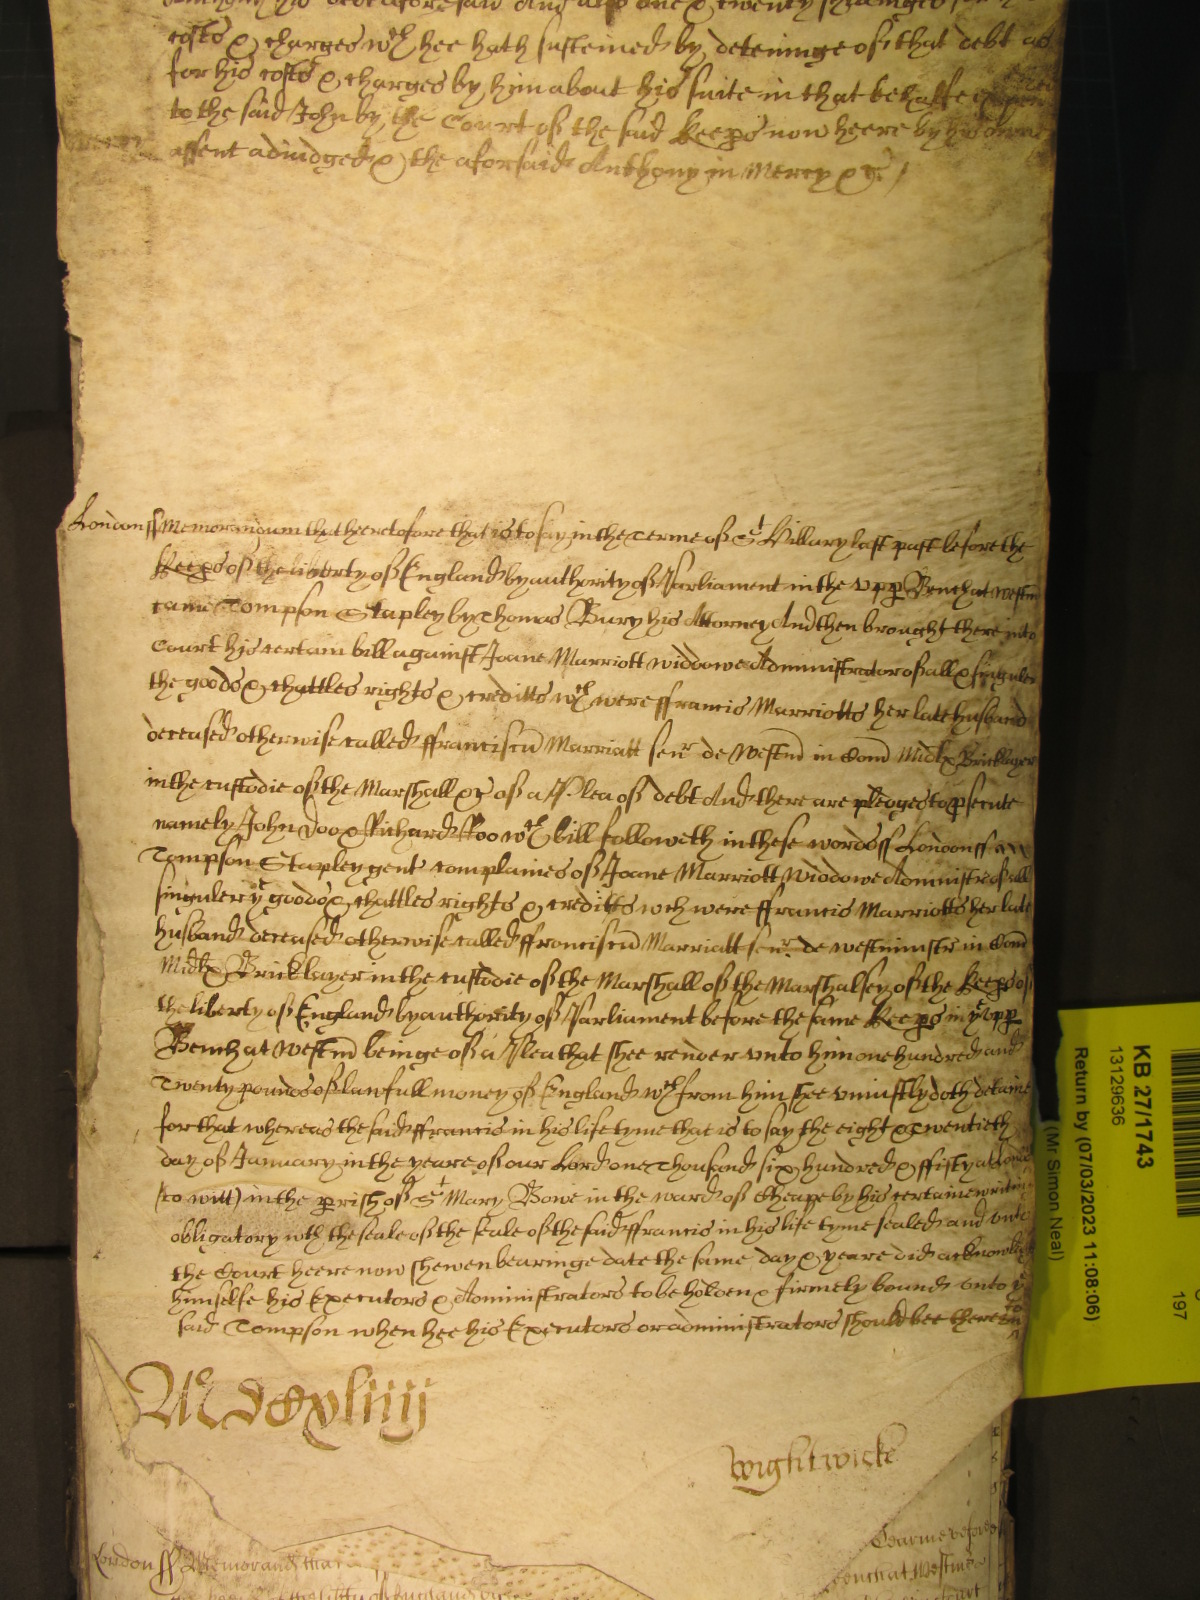 costs & charges wch hee hath susteined by deteininge of that debt as
for his costs & charges by him about his suite in that behalfe
to the said John by the Court of the said Keeps now heere by his
assent adiudged & the aforsaid Anthony in Mercy &c
London ss Memorandum that heeretofore that is to say in the Terme of St Hillary last past before the
Keeps of the liberty of England by authority of Parliament in the vpp Bench at Westm
came Tompson Stapley by Thomas Bury his Attorney And then brought there into
Court his certain bill against Joane Marriott widdowe Administrator of all & singuler
the goods & chattles rights & creditts wch were ffrancis Marriotts her late husband
deceased otherwise called ffranciscu Marriatt senr de Westm in Com Midx Bricklayer
in the custodie of the Marshall &c of a Plea of debt And there are pledges to psecute
namely John Doo & Richard Roo wch bill followeth in these words ss London ss
Tompson Stapley gent complaines of Joane Marriott widdowe Administr of all
singuler ye goods & chattles rights & creditts wch were ffrancis Marriotts her late
husband deceased otherwise called ffranciscu Marriatt senr de Westminstr in Com
Midx Bricklayer in the custodie of the Marshall of the Marshalsey of the Keeps of
the liberty of England by authority of Parliament before the same Keeps in ye vpp
Bench at Westm beinge of a Plea that shee render vnto him one hundred and
Twenty pounds of lawfull money of England wch from him shee vniustly doth detaine
for that whereas the said ffrancis in his life tyme that is to say the eight & Twentieth
day of January in the yeare of our Lord one Thousand six hundred & ffifty att London
(to witt) in the prish of St Mary Bowe in the ward of Cheape by his certaine writinge
obligatory wth the seale of the seale of the said ffrancis in his life tyme sealed and vnto
the Court heere now shewen bearinge date the same day & yeare did acknowledge
himselfe his Executors & Administrators to be holden & firmely bound vnto ye
said Tompson when hee his Executors or administrators should bee therevnto
Wightwicke
London ss Memorand that
KB 27/1743
13129636
Return by (07/03/2023 11:08:06)
(Mr Simon Neal)
197